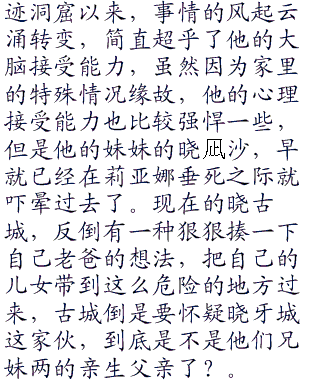 迹洞窟以来，事情的风起云
涌转变，简直超乎了他的大
脑接受能力，虽然因为家里
的特殊情况缘故，他的心理
接受能力也比较强悍一些，
但是他的妹妹的晓凪沙，早
就已经在莉亚娜垂死之际就
吓晕过去了。现在的晓古
城，反倒有一种狠狠揍一下
自己老爸的想法，把自己的
儿女带到这么危险的地方过
来，古城倒是要怀疑晓牙城
这家伙，到底是不是他们兄
妹两的亲生父亲了？。